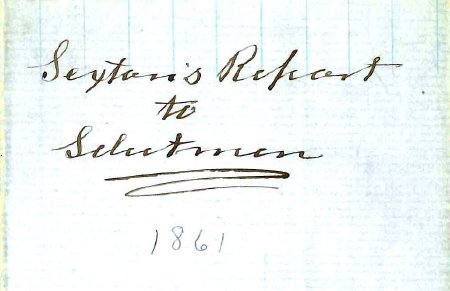 Sexton's Report
to
Selectmen
1861